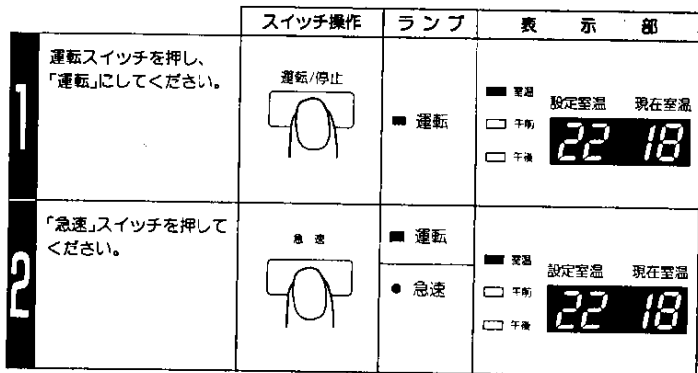 スイッチ操作
ランプ
表示部
1
運転スイッチを押し、
「運転」にしてください。
運転/停止
■ 運転
室温
午前
午後
設定室温 現在室温
22 18
2
「急速」スイッチを押して
ください。
急速
■ 運転
● 急速
室温
午前
午後
設定室温 現在室温
22 18